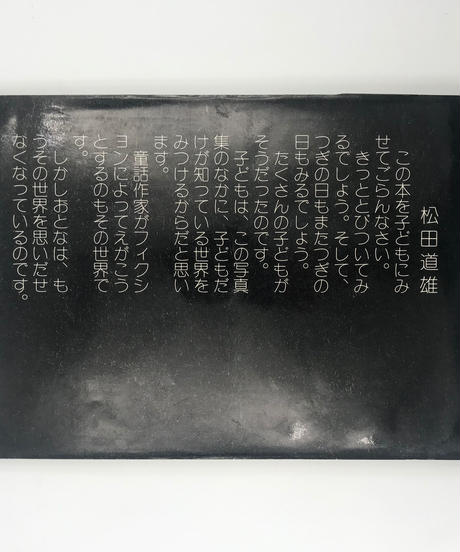 松田道雄
この本を子どもにみ
せてごらんなさい。
きっととびついてみ
るでしょう。そして、
つぎの日もまたつぎの
日もみるでしょう。
たくさんの子どもが
そうだったのです。
子どもは、この写真
集のなかに、子どもだ
けが知っている世界を
みつけるからだと思い
ます。
童話作家がフィクシ
ョンによってえがこう
とするのもその世界で
す。
しかしおとなは、も
うその世界を思いだせ
なくなっているのです。